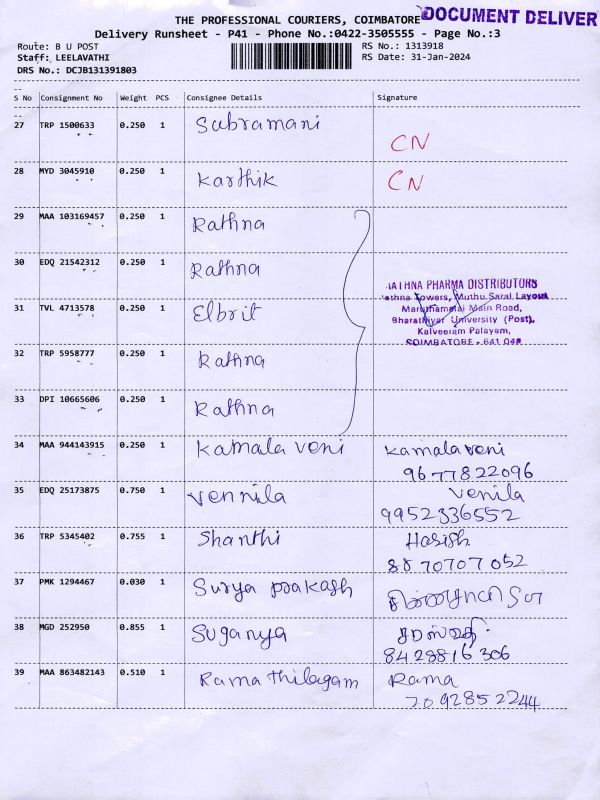 THE PROFESSIONAL COURIERS, COIMBATORE DOCUMENT DELIVER
Delivery Runsheet - P41 - Phone No.:0422-3505555 - Page No.:3
Route: B U POST RS No.: 1313918
Staff: LEELAVATHI RS Date: 31-Jan-2024
DRS No.: DCJB131391803
S No Consignment No Weight PCS Consignee Details Signature
27 TRP 1500633 0.250 1 Subramani
CN
28 MYD 3045910 0.250 1 Karthik CN
29 MAA 103169457 0.250 1 Rathna
30 EDQ 21542312 0.250 1 Rathna
RATHNA PHARMA DISTRIBUTORS
Rathna Towers, Muthu Saral Layout
31 TVL 4713578 0.250 1 Elbrit Maruthamalai Main Road,
Bharathiyar University (Post),
Kalveeram Palayam,
COIMBATORE - 641 046
32 TRP 5958777 0.250 1 Rathna
33 DPI 10665606 0.250 1 Rathna
34 MAA 944143915 0.250 1 Kamala veni Kamalaveni
9677822096
35 EDQ 25173875 0.750 1 Vennila Venila
9952336552
36 TRP 5345402 0.755 1 Shanthi Harish
8870707052
37 PMK 1294467 0.030 1 Surya prakash
38 MGD 252950 0.855 1 Suganya
8428816306
39 MAA 863482143 0.510 1 Rama thilagam Rama
7092852244